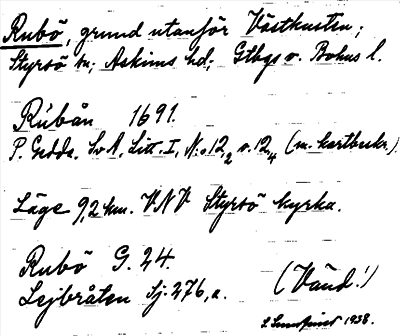 Rubö, grund utanför Västkusten;
Styrsö sn; Askims hd; Gtbgs o. Bohus l.
Rúbån 1691.
P. Gedda. Sv A, Litt. I, N:o 12,2 o. 12,4 (m. kartbeskr.)
Läge 9,2 km. V.N.V Styrsö kyrka.
Rubö G. 24.
Lejbråten Sj: 276, a.
(Vänd!)
1938.